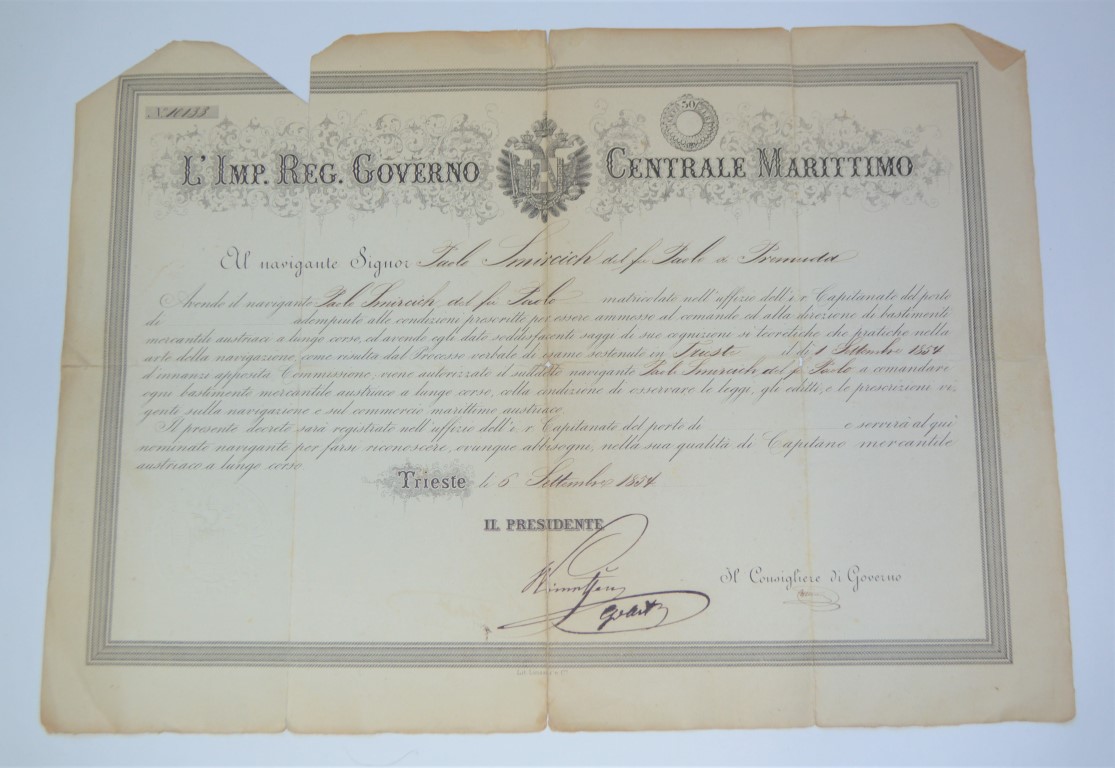 No 10133
50
L' IMP. REG. GOVERNO CENTRALE MARITTIMO
Al navigante Signor Paolo Smircich del fu Paolo da Premuda
Avendo il navigante Paolo Smircich del fu Paolo matricolato nell'uffizio dell'i. r. Capitanato del porto
di adempiuto alle condizioni prescritte per essere ammesso al comando ed alla direzione di bastimenti
mercantili austriaco a lungo corso, ed avendo egli dato soddisfacenti saggi di sue cognizioni sì teoretiche che pratiche nella
arte della navigazione, come risulta dal Processo verbale di esame sostenuto in Trieste il dì 1 Settembre 1854
d'innanzi apposita Commissione, viene autorizzato il suddetto navigante Paolo Smircich del fu Paolo a comandare
ogni bastimento mercantile austriaco a lungo corso, colla condizione di osservare le leggi, gli editti, e le prescrizioni vi,
genti sulla navigazione e sul commercio marittimo austriaco.
Il presente decreto sarà registrato nell'uffizio dell'i. r. Capitanato del porto di e servirà al quì
nominato navigante per farsi riconoscere, ovunque abbisogni, nella sua qualità di Capitano mercantile
austriaco a lungo corso.
Trieste li 6 Settembre 1854
IL PRESIDENTE
Il Consigliere di Governo
Lit.